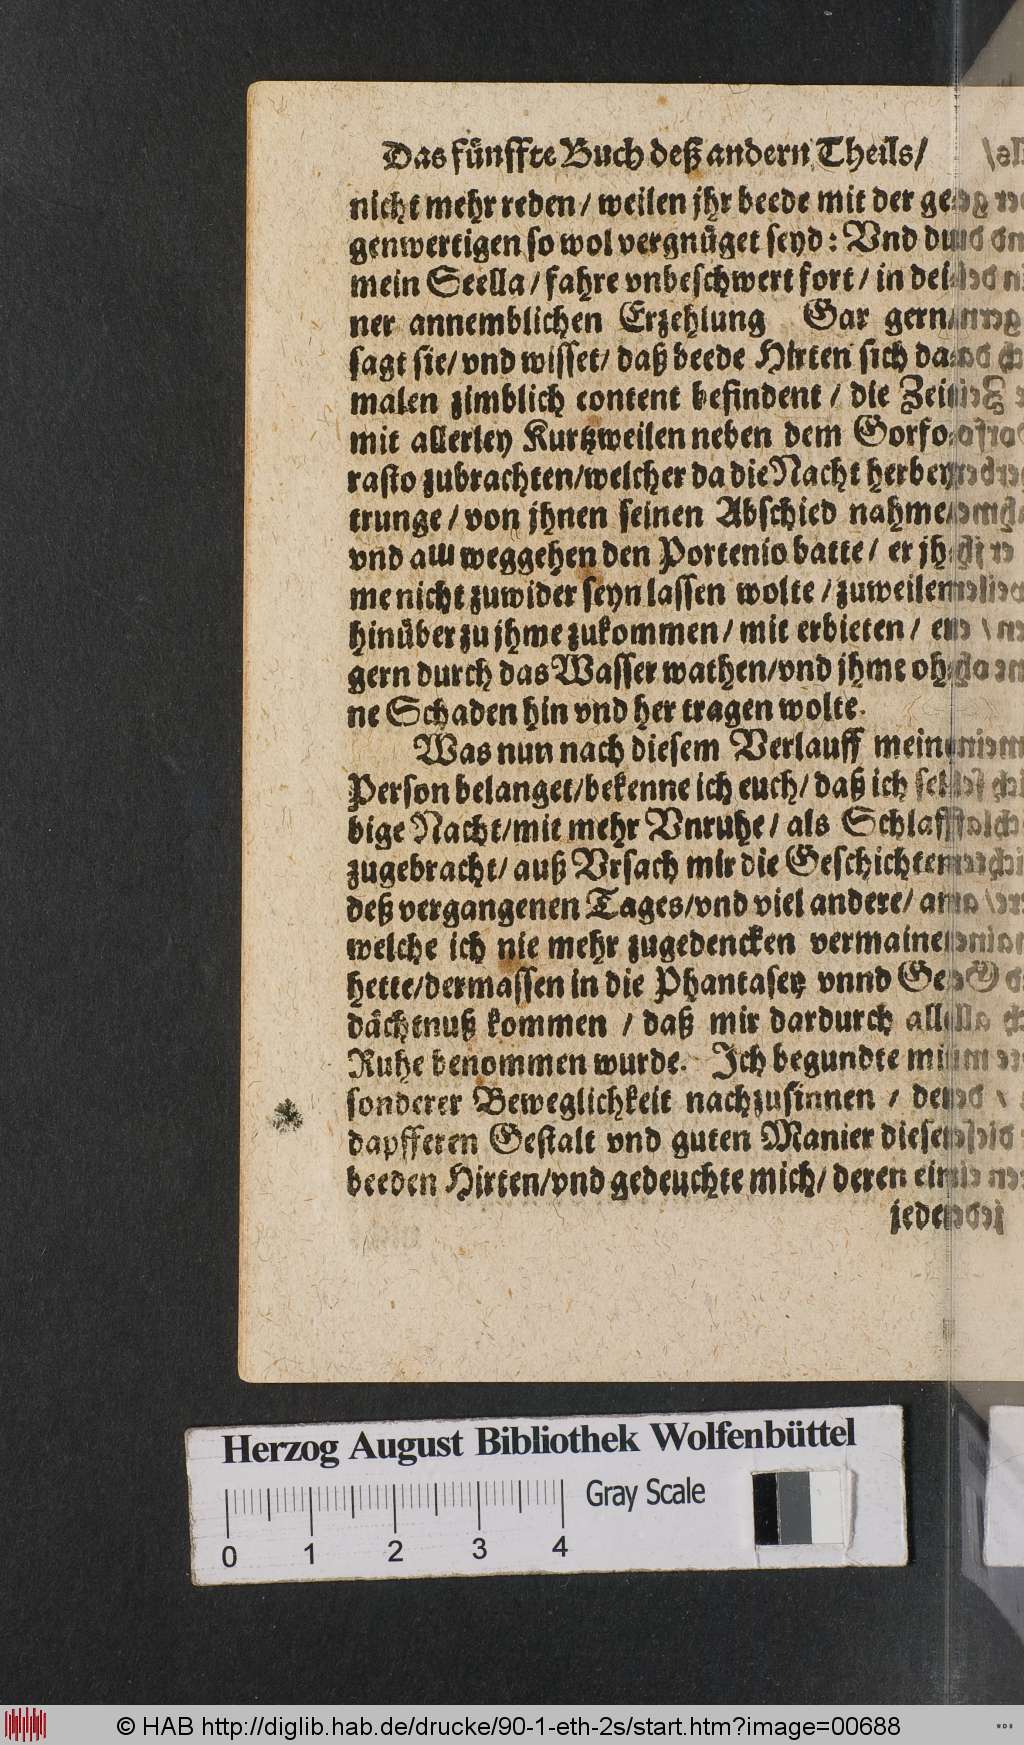 Das fünffte Buch deß andern Theils/
nicht mehr reden/ weilen jhr beede mit der ge-
genwertigen so wol vergnüget seyd: Vnd du
mein Seella/ fahre vnbeschwert fort/ in dei-
ner annemblichen Erzehlung Gar gern/
sagt sie/ vnd wisset/ daß beede Hirten sich da-
malen zimblich content befindent/ die Zeit
mit allerley Kurtzweilen neben dem Gorfo-
rasto zubrachten/welcher da die Nacht herbey
trunge/ von jhnen seinen Abschied nahme/
vnd am weggehen den Portenio batte/ er jh-
me nicht zuwider seyn lassen wolte/ zuweilen
hinüber zu jhme zukommen/ mit erbieten/ er
gern durch das Wasser wathen/vnd jhme oh-
ne Schaden hin vnd her tragen wolte.
Was nun nach diesem Verlauff mein
Person belanget/bekenne ich euch/ daß ich sel-
bige Nacht/mit mehr Vnruhe/ als Schlaff
zugebracht/ auß Vrsach mir die Geschichten
deß vergangenen Tages/vnd viel andere/ an
welche ich nie mehr zugedencken vermainet
hette/dermassen in die Phantasey vnnd Ge-
dächtnuß kommen / daß mir dardurch all
Ruhe benommen wurde. Ich begundte mit
sonderer Beweglichkeit nachzusinnen / der
dapfferen Gestalt vnd guten Manier dieser
beeden Hirten/vnd gedeuchte mich/ deren ein
jeder
Herzog August Bibliothek Wolfenbüttel
Gray Scale
0 1 2 3 4
© HAB http://diglib.hab.de/drucke/90-1-eth-2s/start.htm?image=00688